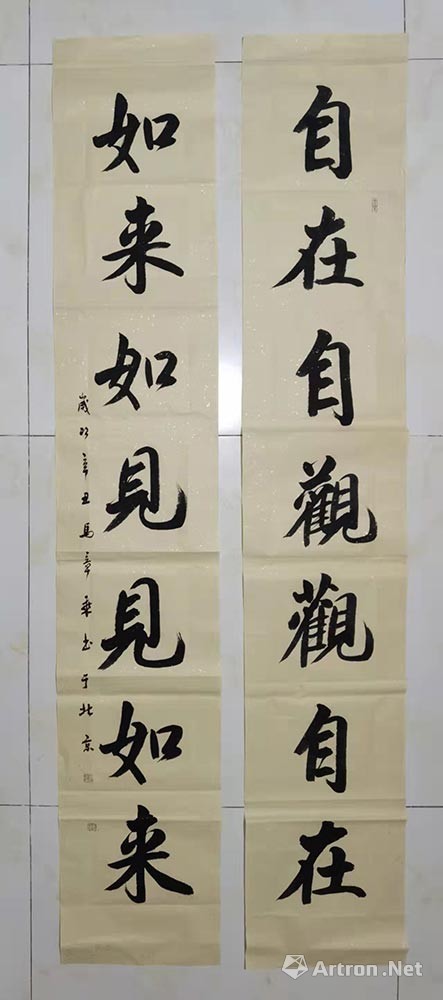 自在自觀觀自在
如来如見見如来
歲次辛丑馬章乘书于北京
Artron.Net